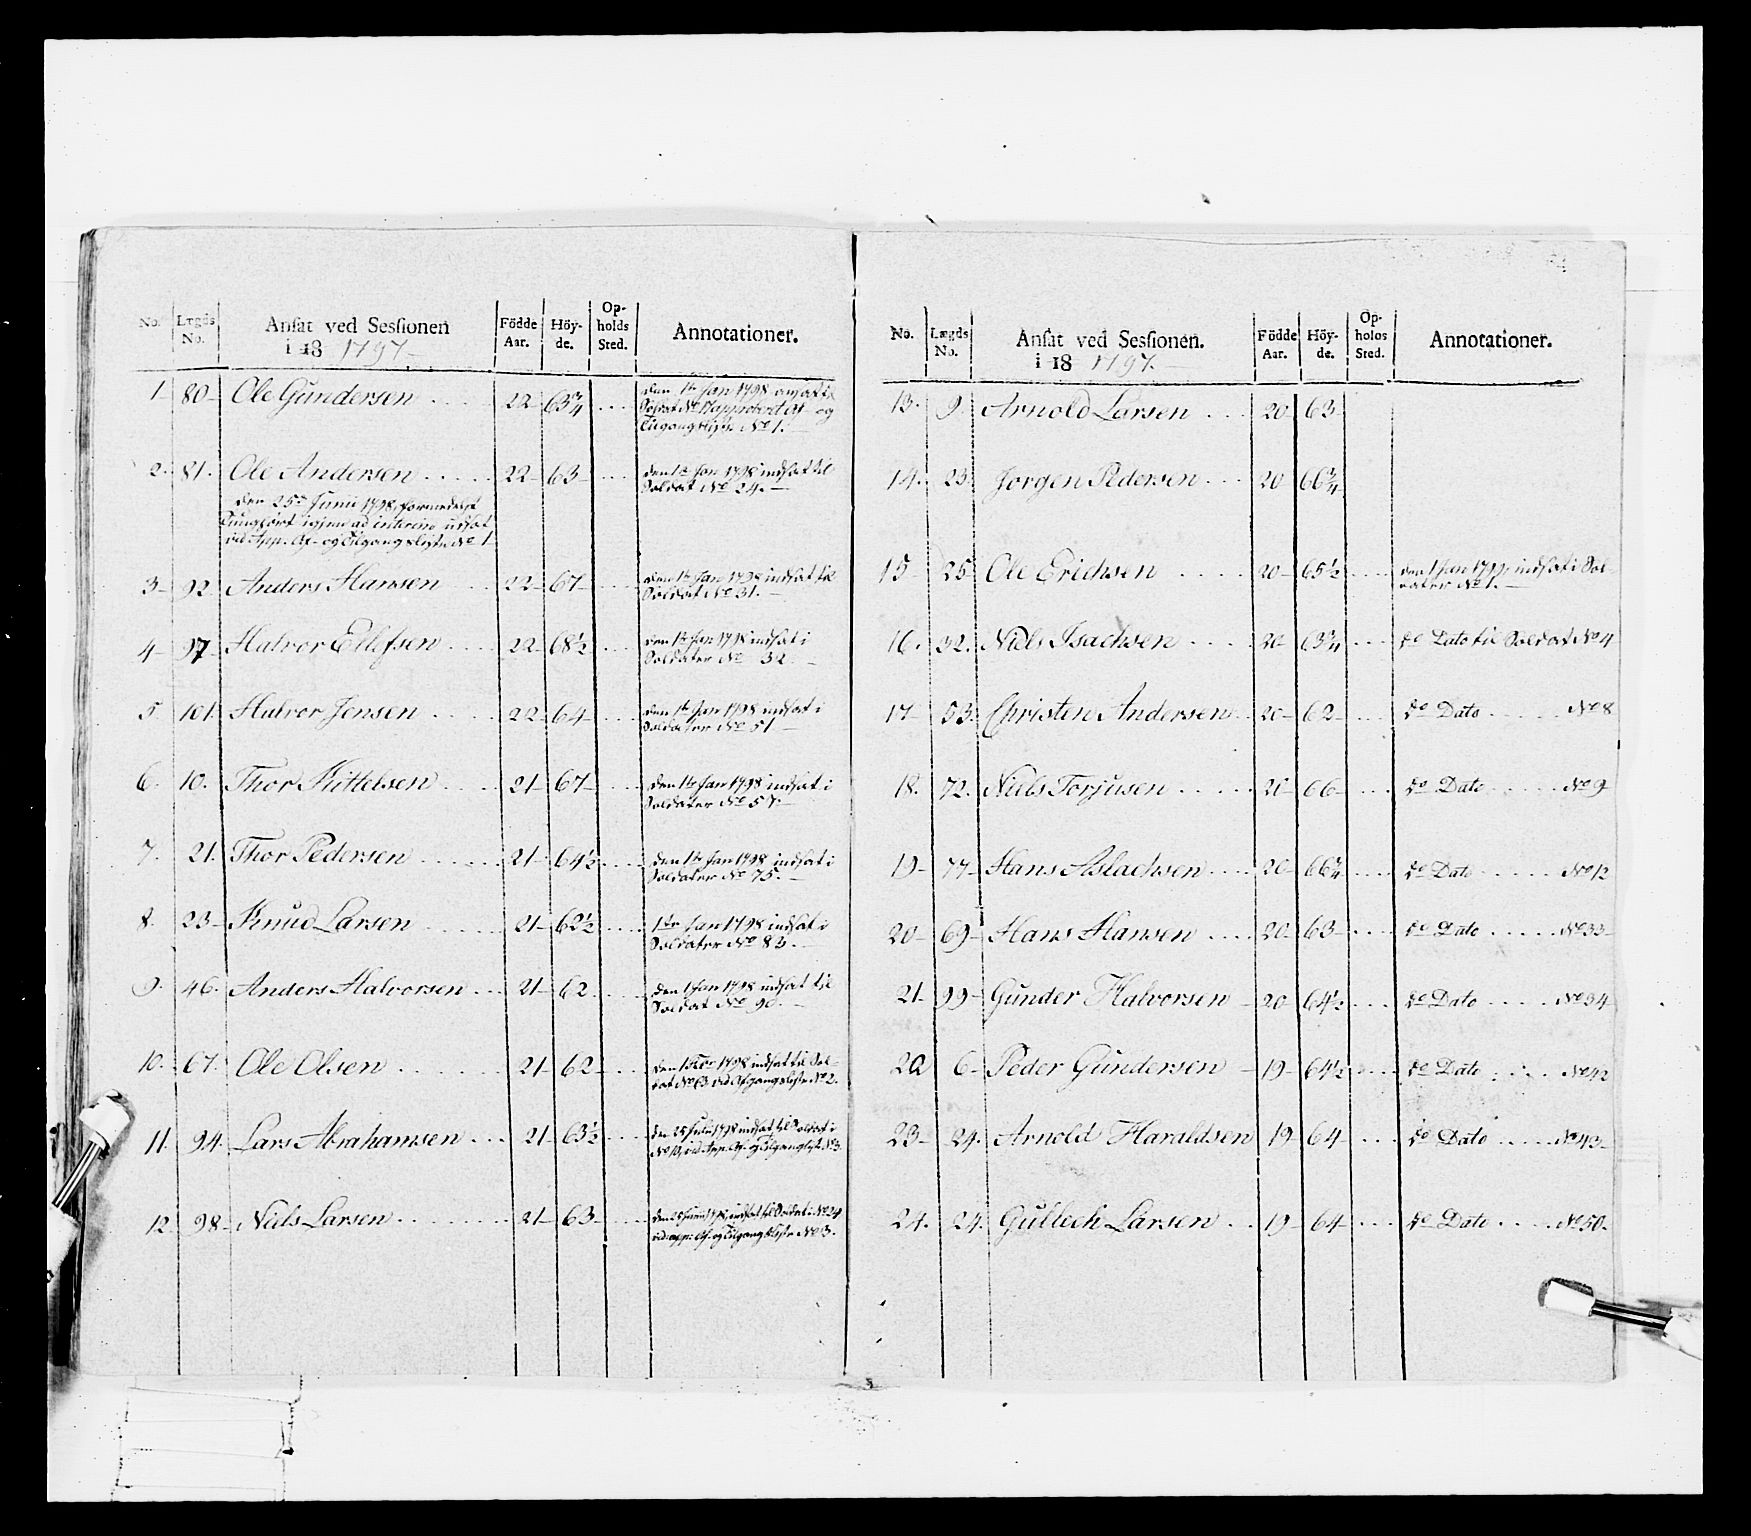 No. Lægds No. Ansat ved Sessionen i 18 1797 Födde Aar. Höy-de. Op-holds Sted. Annotationer.
1 80 Ole Gundersen 22 63 3/4 den 1te Jan 1798 ansat i
Soldat No og
Tilgangsliste No 1.
2. 81. Ole Andersen 22 63 den 1te Jan 1798 indsat til
Soldat No 24.
den 25de Junii 1798, formedelst
igjen ad interim udsat
ved App. Af- og Tilgangsliste No 1
3 92 Anders Hansen 22 67 den 1te Jan 1798 indsat til
Soldat No 31.
4 97 Halvor Ellefsen 22 68½ den 1te Jan 1798 indsat i
Soldater No 32
5 101 Halvor Jensen 22 64 den 1te Jan 1798 indsat i
Soldater No 51
6. 10. Thor Kittelsen 21 67 den 1te Jan 1798 indsat i
Soldater No 57
7. 21. Thor Pedersen 21 64½ den 1te Jan 1798 indsat i
Soldater No 75.
8. 23 Knud Larsen 21 62½ 1te Jan 1798 indsat i
Soldater No 83.
9. 46. Anders Halvorsen 21 62 den 1 Jan 1798 indsat til
Soldat No 90.
10. 67. Ole Olsen 21 62 den 1798 indsat til Sol-
dat No 63 ved Afgangsliste No 2.
11. 94. Lars Abrahamsen 21 63½ den 25 Junii 1798 indsat til Soldat i
No 10, ved App. Af- og Tilgangsliste No 3.
12. 98. Niels Larsen 21 63 den 25 Junii 1798, indsat til Soldat i No 24
ved app: Af- og Tilgangsliste No 3.
No. Lægds No. Ansat ved Sessionen. i 18 1797. Födde Aar. Höy-de. Op-holds Sted. Annotationer.
13. 9. Arnold Larsen 20 63
14. 23. Jørgen Pedersen 20 66 3/4
15 25 Ole Erichsen 20 65½ den 1 Jan 1799 indsat i Sol-
dater No 1.
16. 32. Niels Isachsen 20 63 3/4 do Dato til Soldat No 4
17 53. Christen Andersen 20 62 do Dato No 8
18. 72. Niels Torjusen 20 66 do Dato No 9
19 77 Hans Aslachsen 20 66 3/4 do Dato No 12
20 69 Hans Hansen 20 63 do Dato No 33
21 99 Gunder Halvorsen 20 64½ do Dato No 34
22 6 Peder Gundersen 19 64½ do Dato No 42
23 24. Arnold Haraldsen 19 64 do Dato No 43
24. 24. Gullech Larsen 19 64 do Dato No 50.